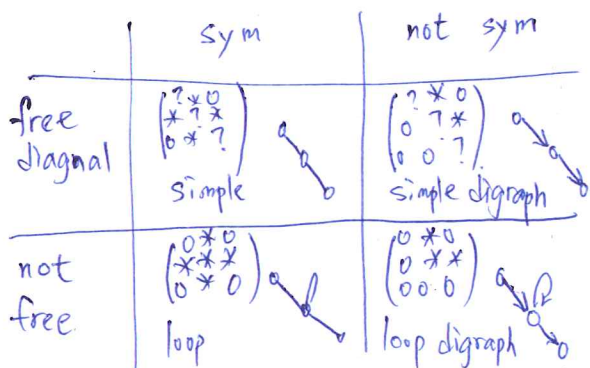 sym not sym
free
diagnal
? * 0
* ? *
0 * ?
simple
? * 0
0 ? *
0 0 ?
simple digraph
not
free
0 * 0
* * *
0 * 0
loop
0 * 0
0 * *
0 0 0
loop digraph